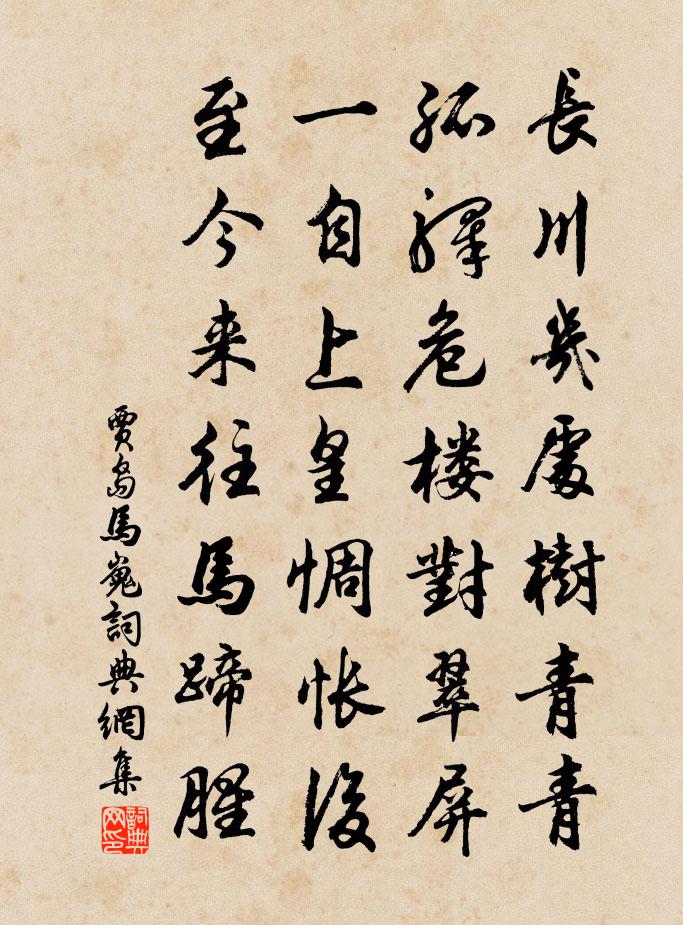 長川幾處樹青青
孤驛危樓對翠屏
一自上皇惆悵後
至今来往馬蹄腥
賈島馬嵬詞典網集
詞典网印